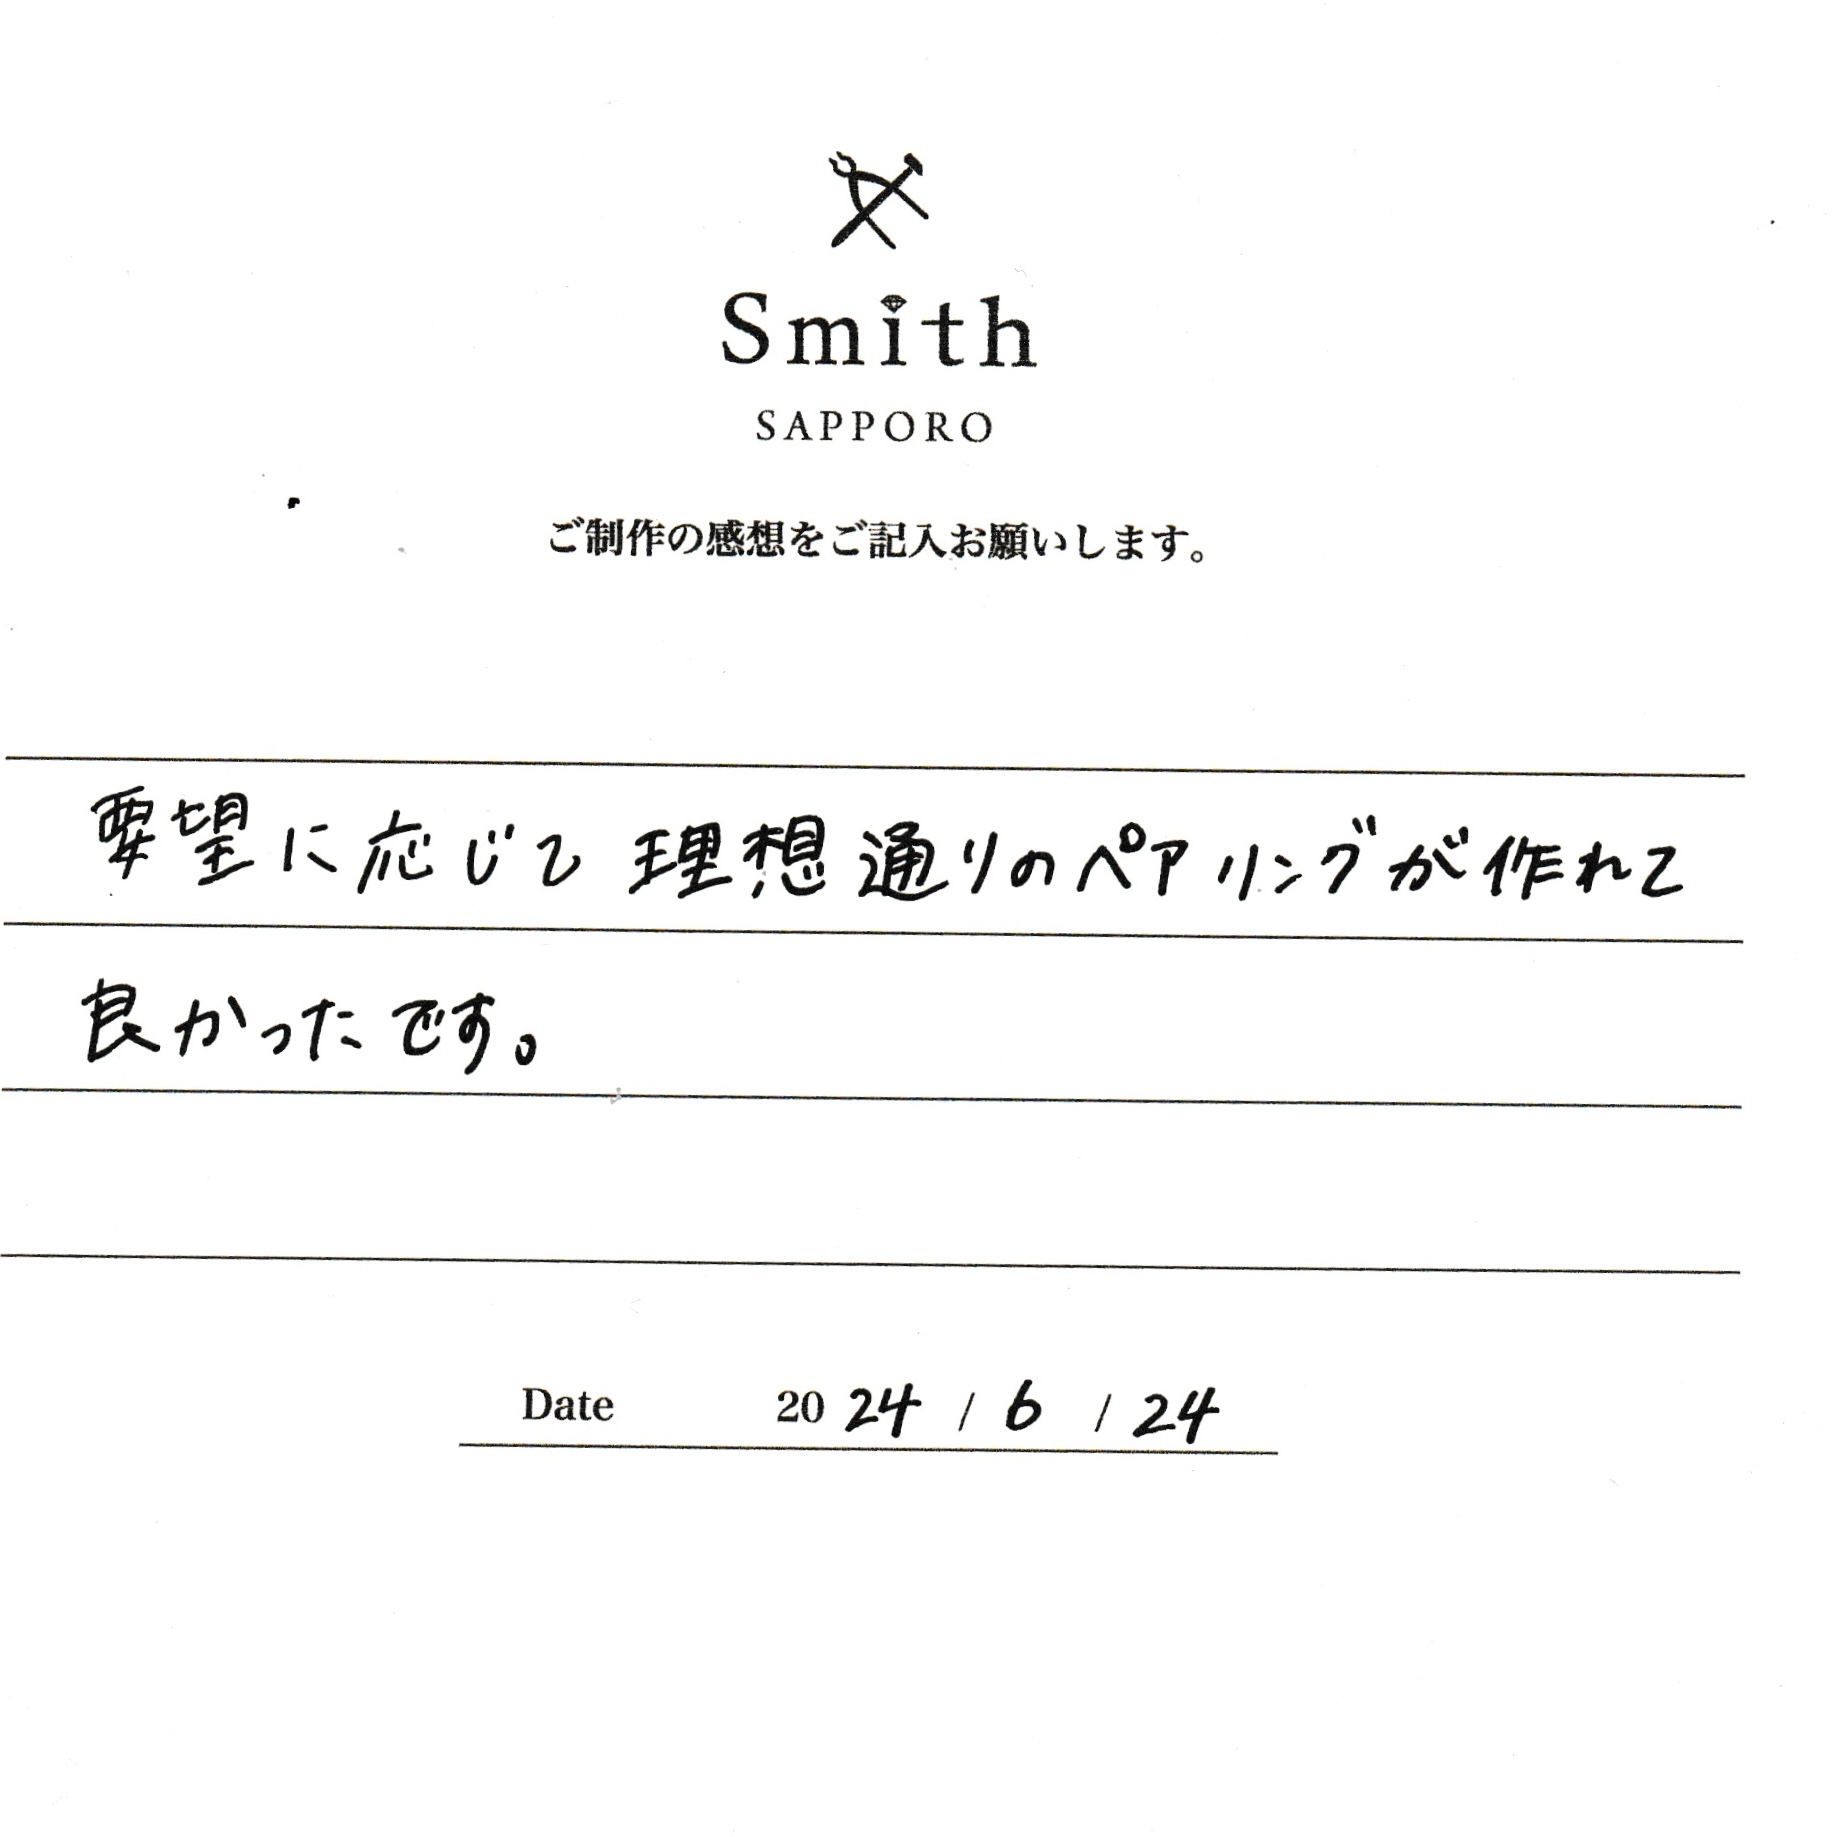 Smith
SAPPORO
ご制作の感想をご記入お願いします。
要望に応じて理想通りのペアリングが作れて
良かったです。
Date 2024 / 6 / 24